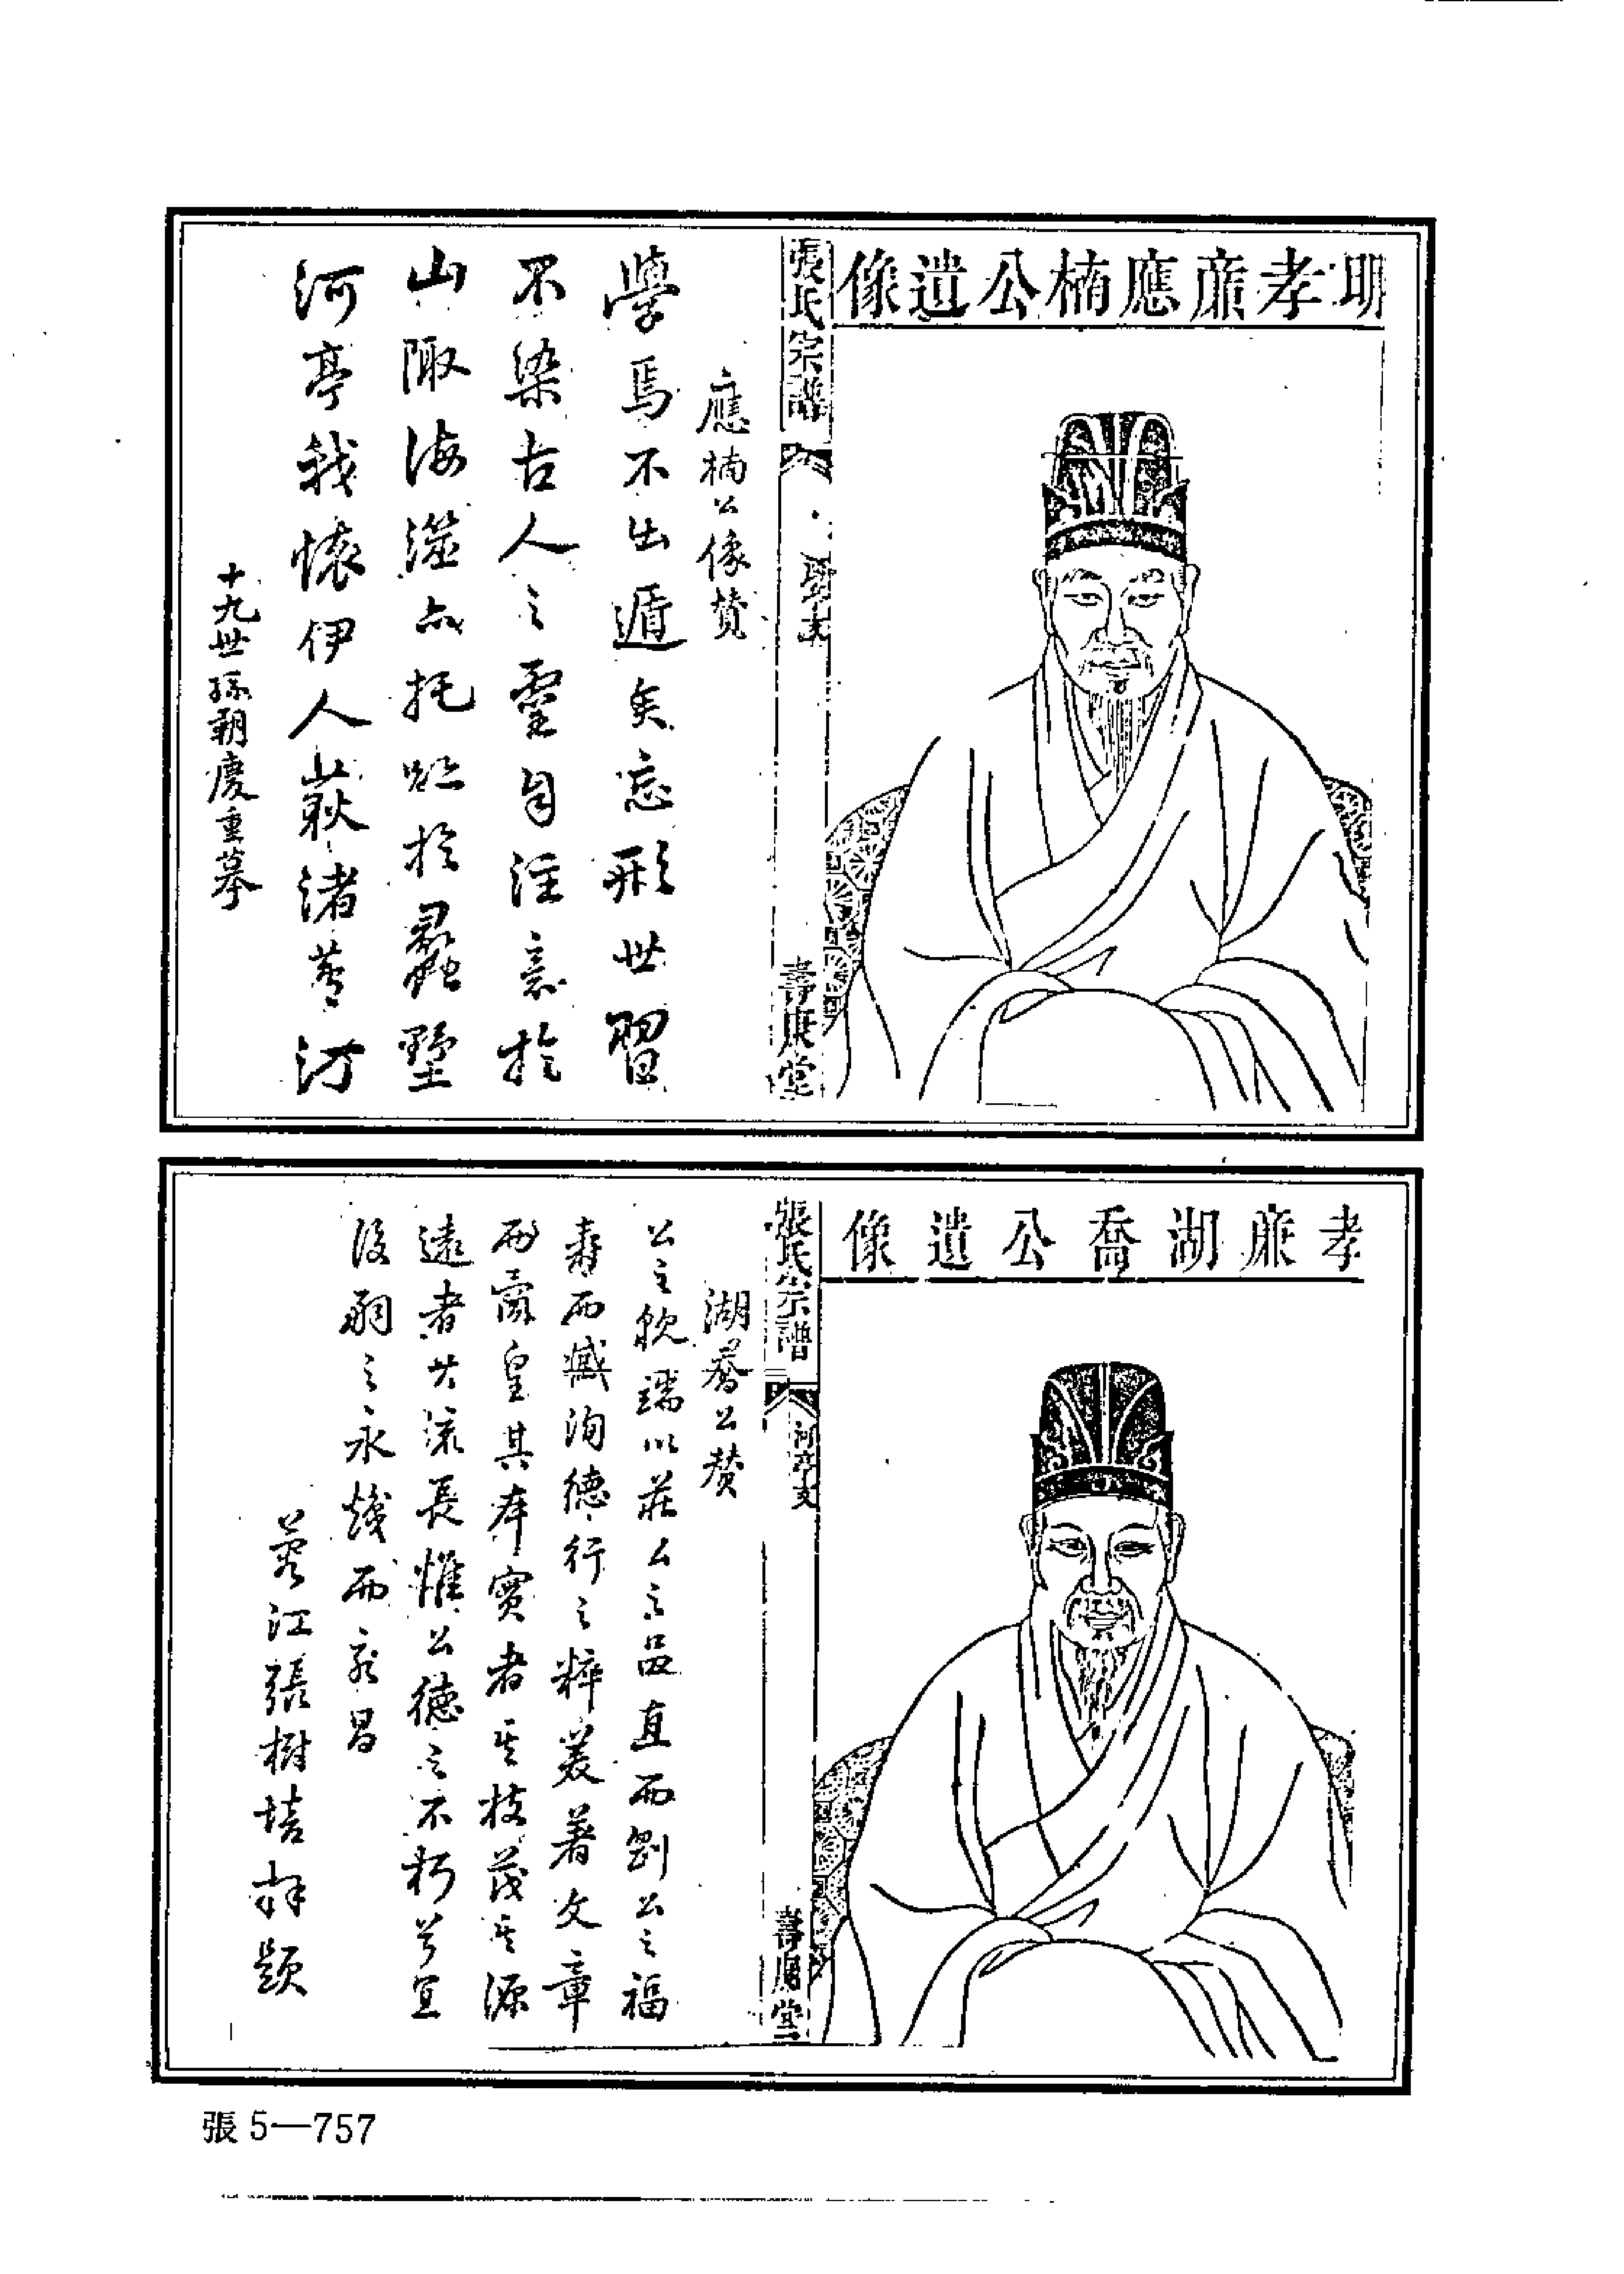 明孝廉應楠公遺像
張氏宗譜
壽康堂
應楠公像贊
學焉不出遁矣忘形世習
不染古人之靈目注意於
山陬海澨亦托跡於農墅
河亭我懷伊人荻渚蘆汀
十九世孫朝慶重摹
孝廉湖喬公遺像
張氏宗譜
河亭支
壽康堂
湖喬公贊
公之貌端以莊公之品直而剛公之福
壽而臧洵德行之粹美著文章
而矞皇其本實者其枝茂其源
遠者其流長惟公德之不朽兮宜
後嗣之永熾而永昌
江張樹培拜題
張 5—757